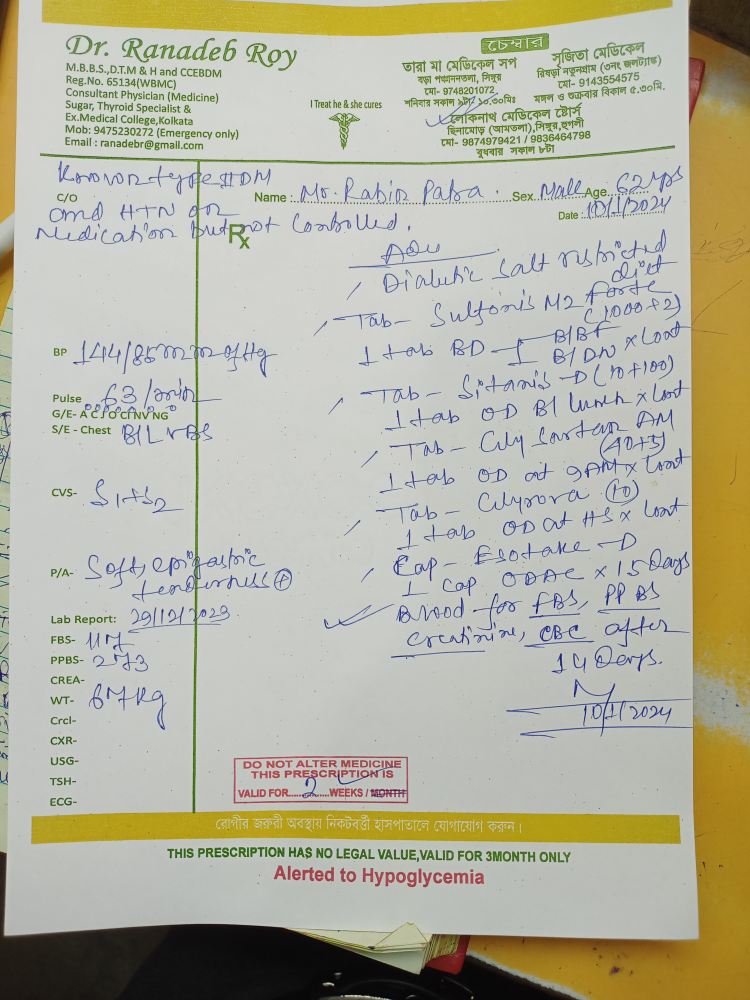 Dr. Ranadeb Roy
M.B.B.S.,D.T.M & H and CCEBDM
Reg.No. 65134(WBMC)
Consultant Physician (Medicine)
Sugar, Thyroid Specialist &
Ex.Medical College,Kolkata
Mob: 9475230272 (Emergency only)
Email : ranadebr@gmail.com
I Treat he & she cures
চেম্বার
তারা মা মেডিকেল সপ
বড়া পঞ্চাননতলা, সিঙ্গুর
মো- 9748201072
শনিবার সকাল ৯টা/১০.৩০মিঃ
সুজিতা মেডিকেল
রিষড়া নতুনগ্রাম (৩নং জলট্যাঙ্ক)
মো- 9143554575
মঙ্গল ও শুক্রবার বিকাল ৫.৩০মি.
লোকনাথ মেডিকেল ষ্টোর্স
ছিনামোড় (আমতলা),সিঙ্গুর,হুগলী
মো- 9874979421 / 9836464798
বুধবার সকাল ৮টা
Known type II DM
C/O
and HTN on
Medication but not Controlled.
Name : Mr. Rabin Patra. Sex Male Age 62 yrs
Date : 10/1/2024
Rx
Adv
Diabetic Salt restricted
diet
Tab- Sulfonis M2 Forte
(1000+2)
1 tab BD - 1 B/BF
B/DN x Cont
Tab- Sitanis-D (10+100)
1 tab OD B/ lunch x Cont
Tab- Cilysartan AM
(40+5)
1 tab OD at 9AM x Cont
Tab- Cilyrova (10)
1 tab OD at HS x Cont
Cap- Esotake-D
1 cap ODAC x 15 Days
Blood for FBS, PPBS
Creatinine, CBC after
14 Days.
10/1/2024
BP 144/85mm of Hg
Pulse 63/min
G/E- A C J O C1 NV NG
S/E - Chest B/L VBS
CVS- S1+S2
P/A- Soft, epigastric
tenderness +
Lab Report: 29/12/2023
FBS- 117
PPBS- 273
CREA-
WT- 67kg
Crcl-
CXR-
USG-
TSH-
ECG-
DO NOT ALTER MEDICINE
THIS PRESCRIPTION IS
VALID FOR......2......WEEKS / MONTH
রোগীর জরুরী অবস্থায় নিকটবর্ত্তী হাসপাতালে যোগাযোগ করুন।
THIS PRESCRIPTION HAS NO LEGAL VALUE,VALID FOR 3MONTH ONLY
Alerted to Hypoglycemia